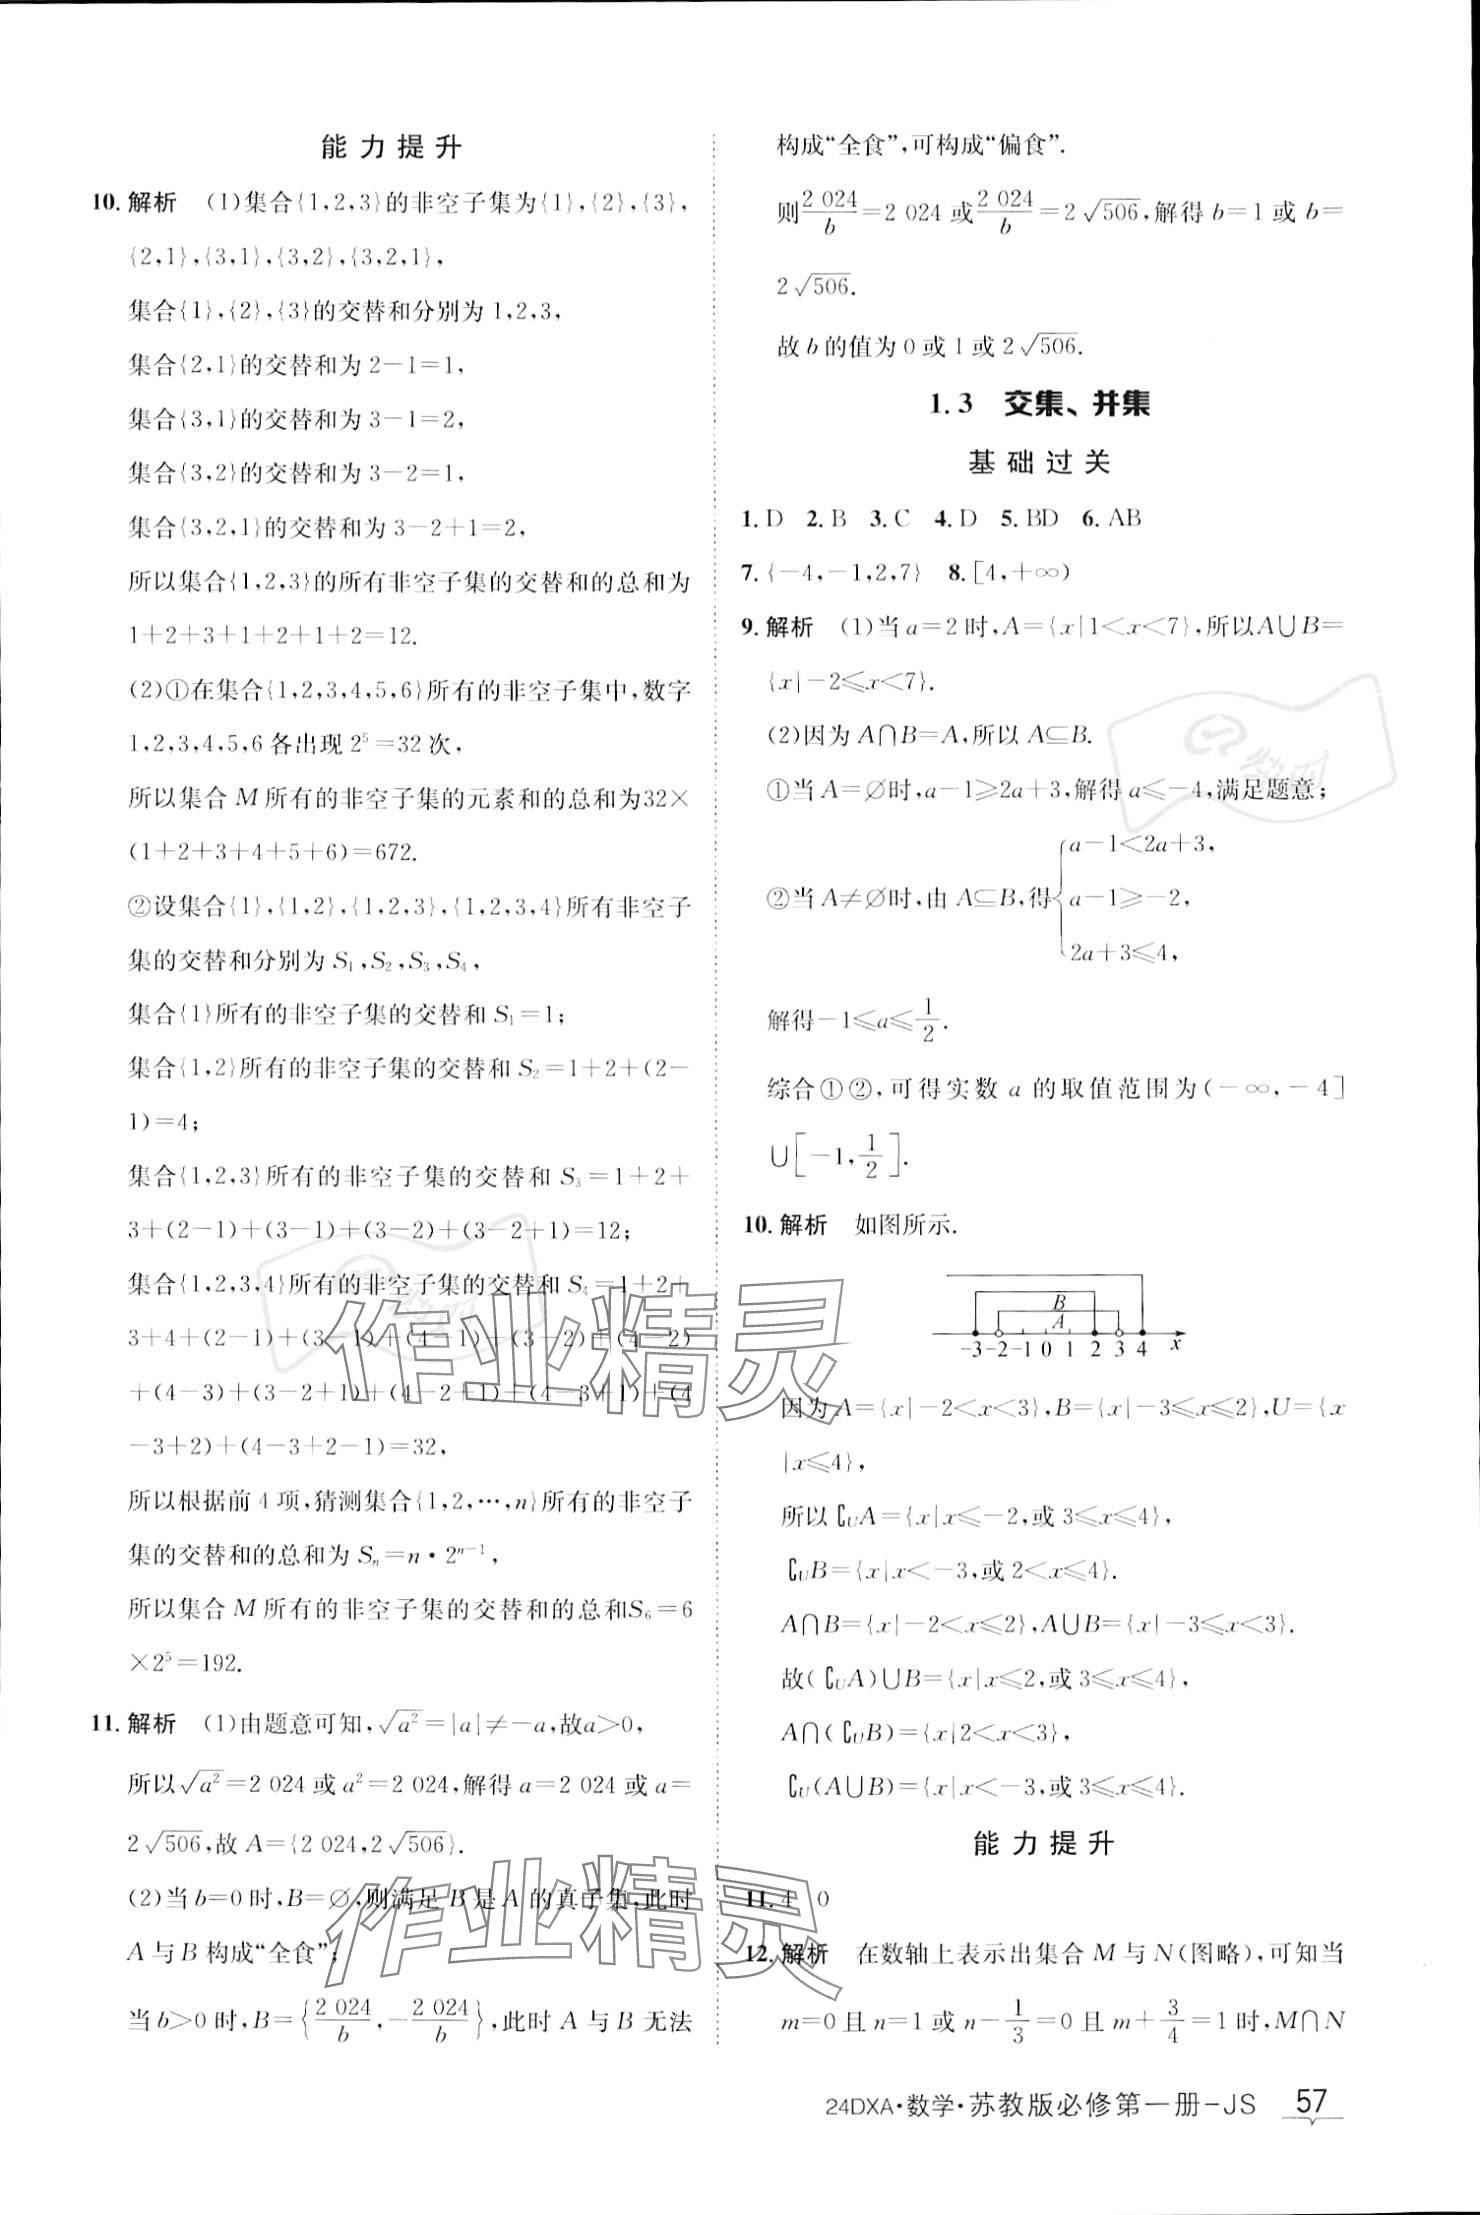 能力提升
10. 解析 (1)集合{1,2,3}的非空子集为{1},{2},{3},
{2,1},{3,1},{3,2},{3,2,1},
集合{1},{2},{3}的交替和分别为 1,2,3,
集合{2,1}的交替和为 2−1=1,
集合{3,1}的交替和为 3−1=2,
集合{3,2}的交替和为 3−2=1,
集合{3,2,1}的交替和为 3−2+1=2,
所以集合{1,2,3}的所有非空子集的交替和的总和为
1+2+3+1+2+1+2=12.
(2)①在集合{1,2,3,4,5,6}所有的非空子集中,数字
1,2,3,4,5,6 各出现 2⁵=32 次,
所以集合 M 所有的非空子集的元素和的总和为32×
(1+2+3+4+5+6)=672.
②设集合{1},{1,2},{1,2,3},{1,2,3,4}所有非空子
集的交替和分别为 S₁,S₂,S₃,S₄,
集合{1}所有的非空子集的交替和 S₁=1;
集合{1,2}所有的非空子集的交替和 S₂=1+2+(2−
1)=4;
集合{1,2,3}所有的非空子集的交替和 S₃=1+2+
3+(2−1)+(3−1)+(3−2)+(3−2+1)=12;
集合{1,2,3,4}所有的非空子集的交替和 S₄=1+2+
3+4+(2−1)+(3−1)+(4−1)+(3−2)+(4−2)
+(4−3)+(3−2+1)+(4−2+1)+(4−3+1)+(4
−3+2)+(4−3+2−1)=32,
所以根据前 4 项,猜测集合{1,2,⋯,n}所有的非空子
集的交替和的总和为 Sₙ=n·2ⁿ⁻¹,
所以集合 M 所有的非空子集的交替和的总和S₆=6
×2⁵=192.
11. 解析 (1)由题意可知,√a²=|a|≠−a,故a>0,
所以√a²=2 024 或 a²=2 024,解得 a=2 024 或 a=
2√506,故 A={2 024,2√506}.
(2)当 b=0 时,B=∅,则满足 B 是 A 的真子集,此时
A 与 B 构成“全食”;
当 b>0 时,B={2 024/b,−2 024/b},此时 A 与 B 无法
构成“全食”,可构成“偏食”.
则2 024/b=2 024 或2 024/b=2√506,解得 b=1 或 b=
2√506.
故 b 的值为 0 或 1 或 2√506.
1.3 交集、并集
基础过关
1. D 2. B 3. C 4. D 5. BD 6. AB
7. {−4,−1,2,7} 8. [4,+∞)
9. 解析 (1)当 a=2 时,A={x|1<x<7},所以A∪B=
{x|−2≤x<7}.
(2)因为 A∩B=A,所以 A⊆B.
①当 A=∅时,a−1≥2a+3,解得 a≤−4,满足题意;
②当 A≠∅时,由 A⊆B,得{a−1<2a+3,
a−1≥−2,
2a+3≤4,
解得−1≤a≤1/2.
综合①②,可得实数 a 的取值范围为(−∞,−4]
∪[−1,1/2].
10. 解析 如图所示.
B
A
−3 −2 −1 0 1 2 3 4 x
因为 A={x|−2<x<3},B={x|−3≤x≤2},U={x
|x≤4},
所以 ∁UA={x|x≤−2,或 3≤x≤4},
∁UB={x|x<−3,或 2<x≤4}.
A∩B={x|−2<x≤2},A∪B={x|−3≤x<3}.
故(∁UA)∪B={x|x≤2,或 3≤x≤4},
A∩(∁UB)={x|2<x<3},
∁U(A∪B)={x|x<−3,或 3≤x≤4}.
能力提升
11. 4 0
12. 解析 在数轴上表示出集合 M 与 N(图略),可知当
m=0 且 n=1 或 n−1/3=0 且 m+3/4=1 时,M∩N
24DXA·数学·苏教版必修第一册-JS 57
作业精灵
作业精灵